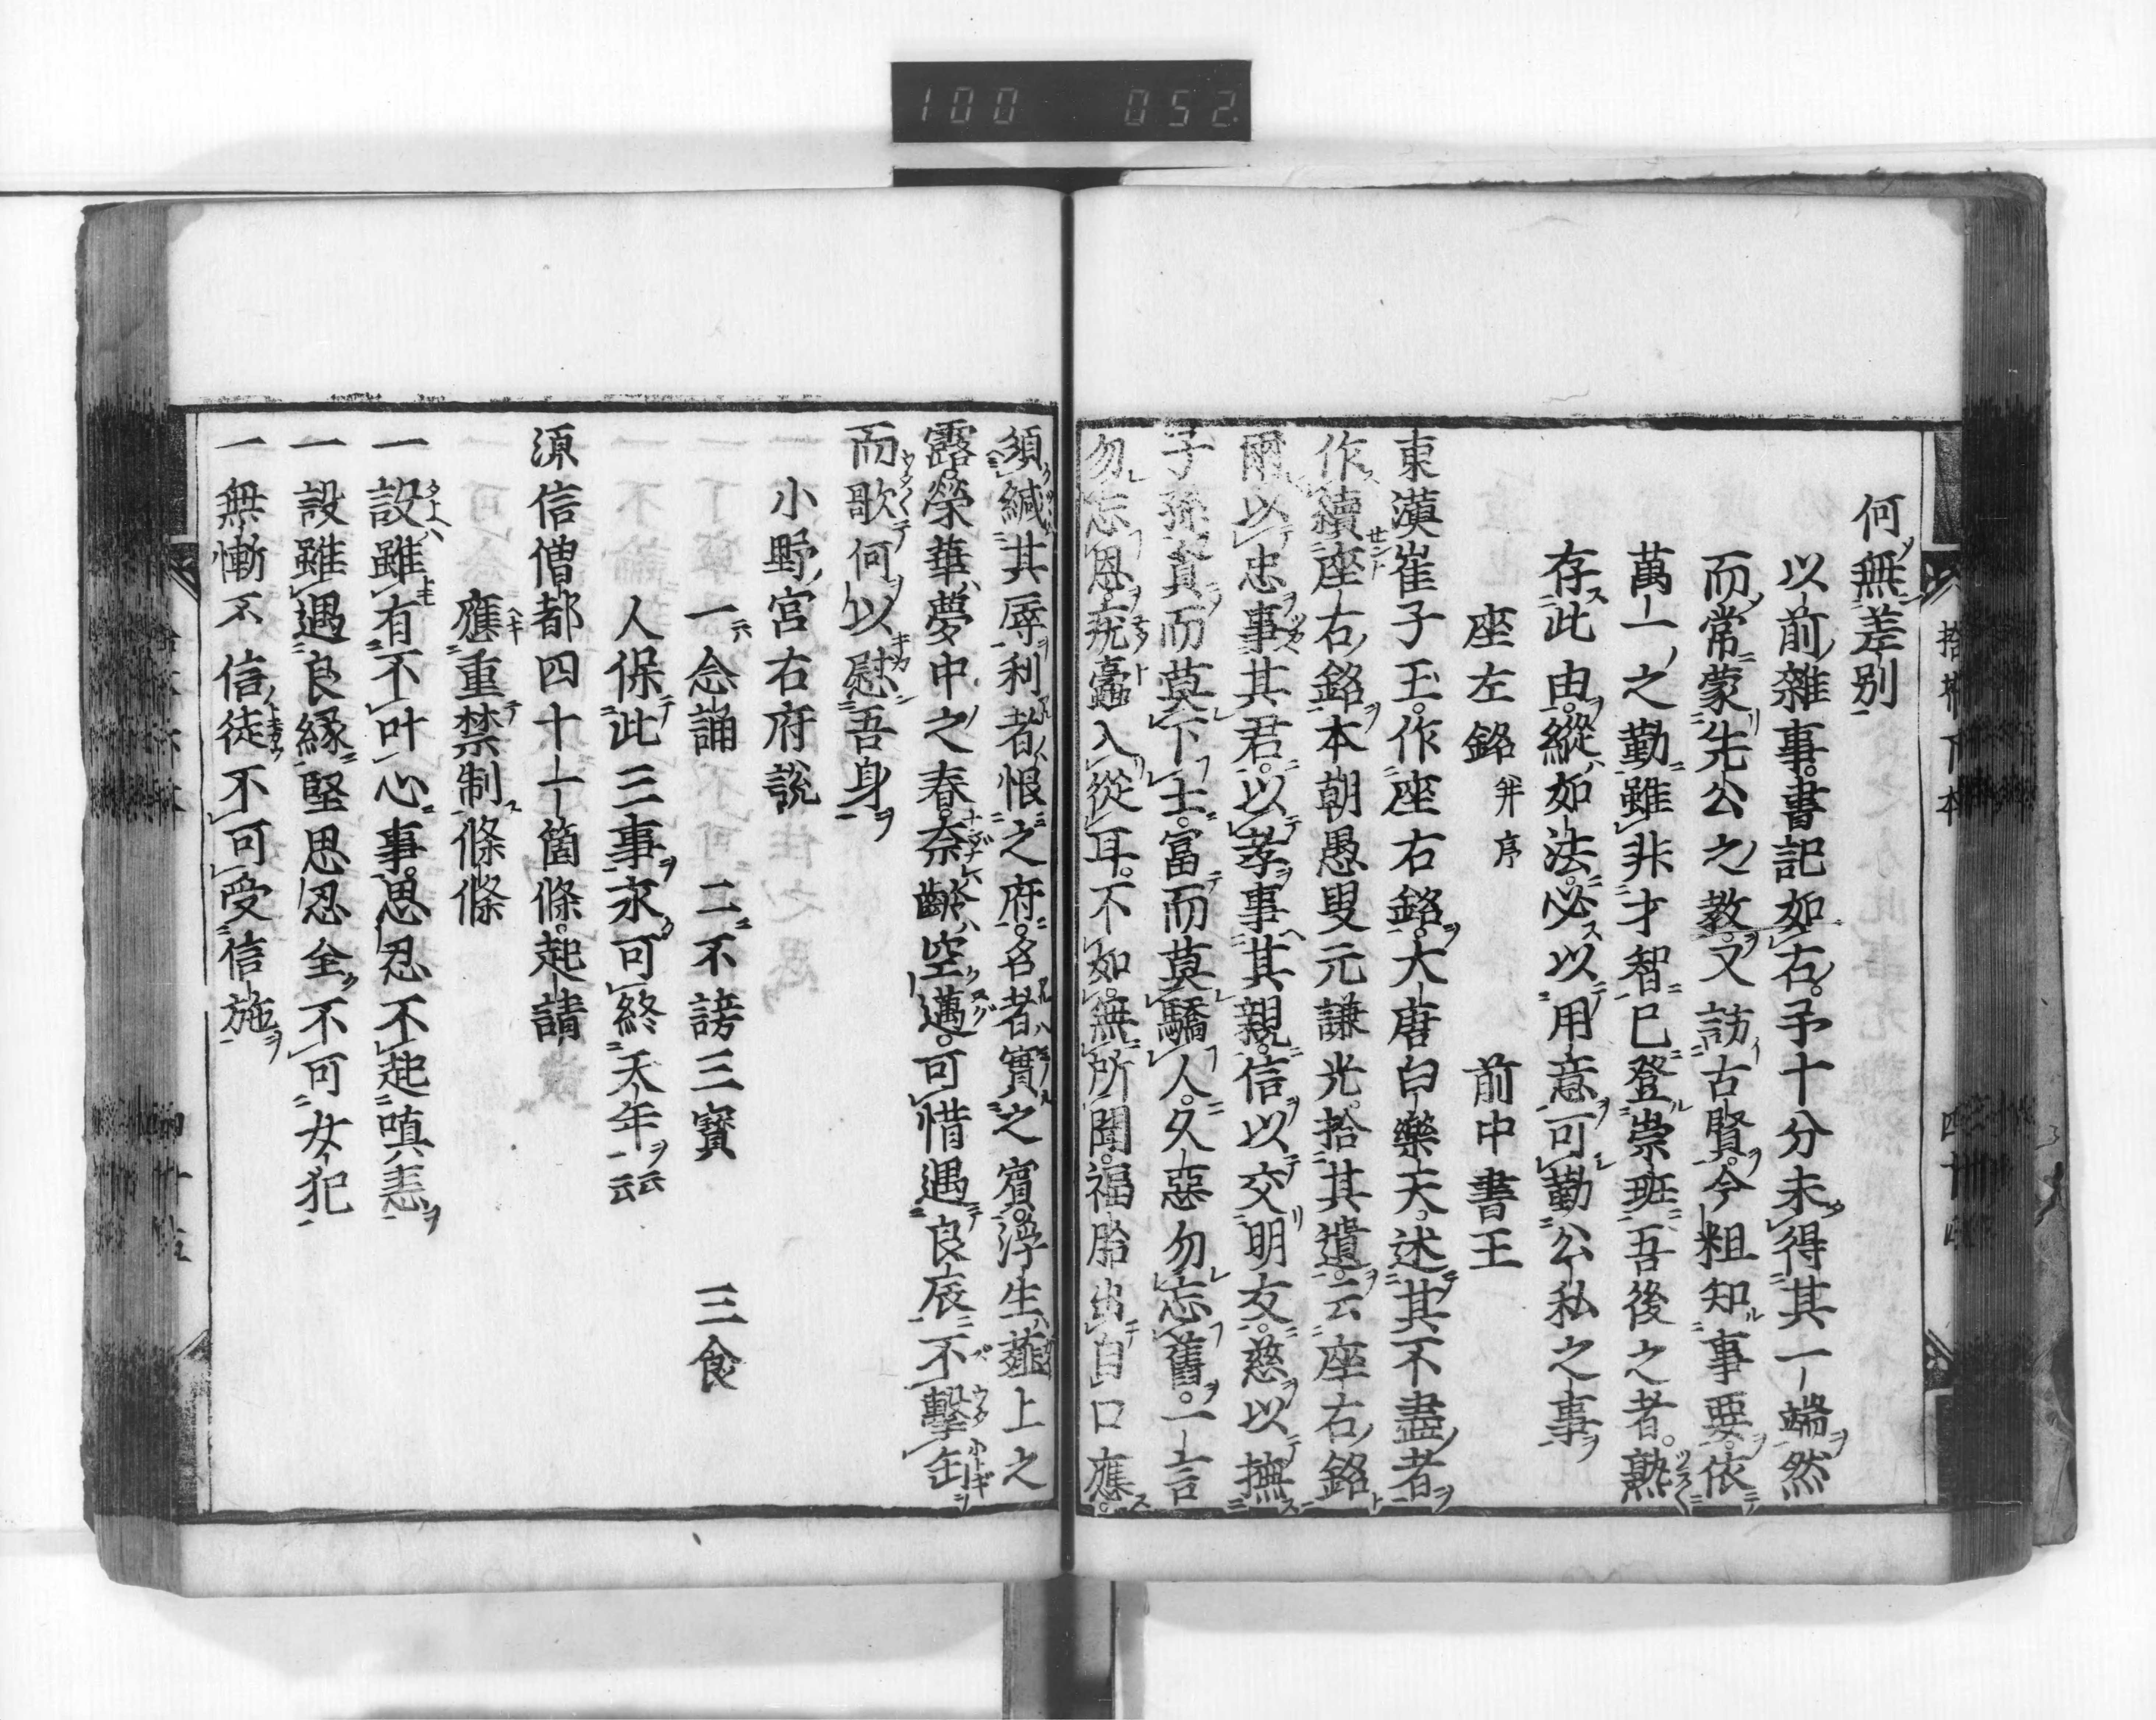 100 052
何無差別
以前雜事書記如右予十分未得其一端然
而常蒙先公之教又訪古賢今粗知事要依
萬一之勤雖非才智已登崇班吾後之者熟
存此由縱如法必以用意可勤公私之事
座左銘 并序 前中書王
東漢崔子玉作座右銘大唐白樂天述其不盡者
作續座右銘本朝愚叟元謙光拾其遺云座右銘
爾以忠事其君以孝事其親信以交明友慈以撫
子孫貴而莫下士富而莫驕人久惡勿忘舊一言
勿忘恩 蠹入從耳不如無所聞福胎出自口應
須緘其辱利者恨之府名者實之賓浮生薤上之
露榮華夢中之春奈齡空邁可惜遇良辰不擊缶
而歌何以慰吾身
小野宮右府說
一念誦 二不謗三寶 三食
人保此三事永可終天年云云
源信僧都四十一箇條起請
應重禁制條條
一設雖有不叶心事思忍不起嗔恚
一設雖遇良緣堅思忍全不可女犯
一無慚不信徒不可受信施